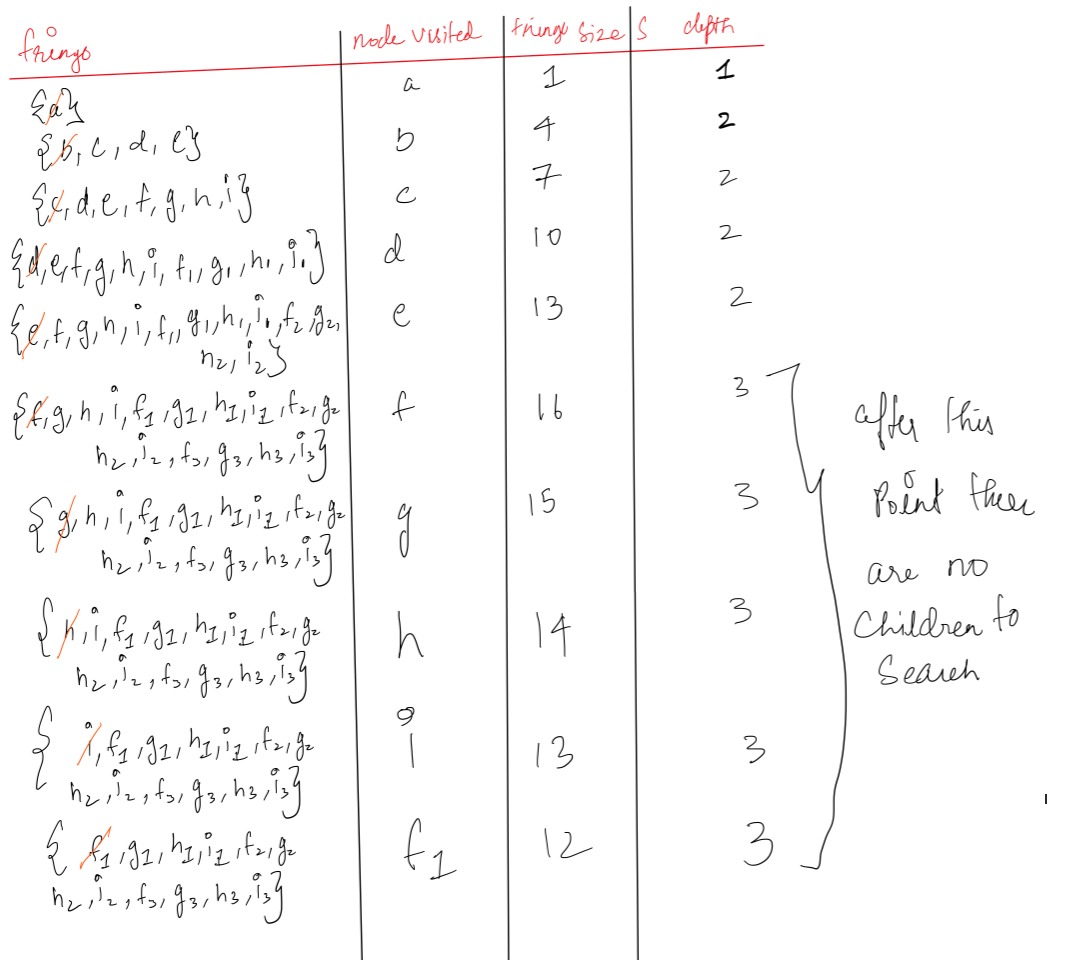 fringe node visited fringe size S depth
{a} a 1 1
{b, c, d, e} b 4 2
{c, d, e, f, g, h, i} c 7 2
{d, e, f, g, h, i, f1, g1, h1, i1} d 10 2
{e, f, g, h, i, f1, g1, h1, i1, f2, g2, e 13 2
h2, i2}
{f, g, h, i, f1, g1, h1, i1, f2, g2 f 16 3
h2, i2, f3, g3, h3, i3}
{g, h, i, f1, g1, h1, i1, f2, g2 g 15 3
h2, i2, f3, g3, h3, i3}
{h, i, f1, g1, h1, i1, f2, g2 h 14 3
h2, i2, f3, g3, h3, i3}
{ i, f1, g1, h1, i1, f2, g2 i 13 3
h2, i2, f3, g3, h3, i3}
{ f1, g1, h1, i1, f2, g2 f1 12 3
h2, i2, f3, g3, h3, i3}
after this
Point ther
are no
Children to
Search